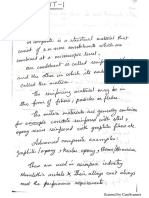 UNIT-1
A composite is a structural material that
consist of two or more constituents which are
combined at a macroscopic level.
one constituent is called reinforcing
and the other in which its embedded
called the matrix.
The reinforcing material may be in
the form of fibers, particles or flakes.
The matrix materials are generally
for concrete reinforced with steel,
epoxy resin reinforced with graphite fibers etc
Advanced composite Examples:
graphite/epoxy, Kevlar/epoxy, Boron/Aluminium
These are used in aerospace industry
Monolithic metals & their alloys can't always
meet the performance requirement
Scanned by CamScanner